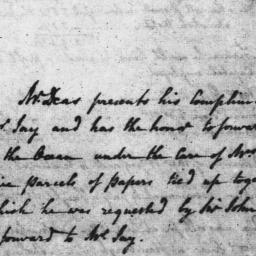 Mr. Kear presents his Complim
Jay and has the honor to forwar
the Ocean under the Care of Mr
parcels of papers tied up toge
which he was requested by Sir John
forward to Mr. Jay.